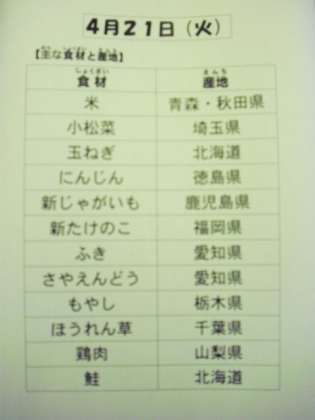 4月21日（火）
【主な食材と産地】
食材 産地
米 青森・秋田県
小松菜 埼玉県
玉ねぎ 北海道
にんじん 徳島県
新じゃがいも 鹿児島県
新たけのこ 福岡県
ふき 愛知県
さやえんどう 愛知県
もやし 栃木県
ほうれん草 千葉県
鶏肉 山梨県
鮭 北海道